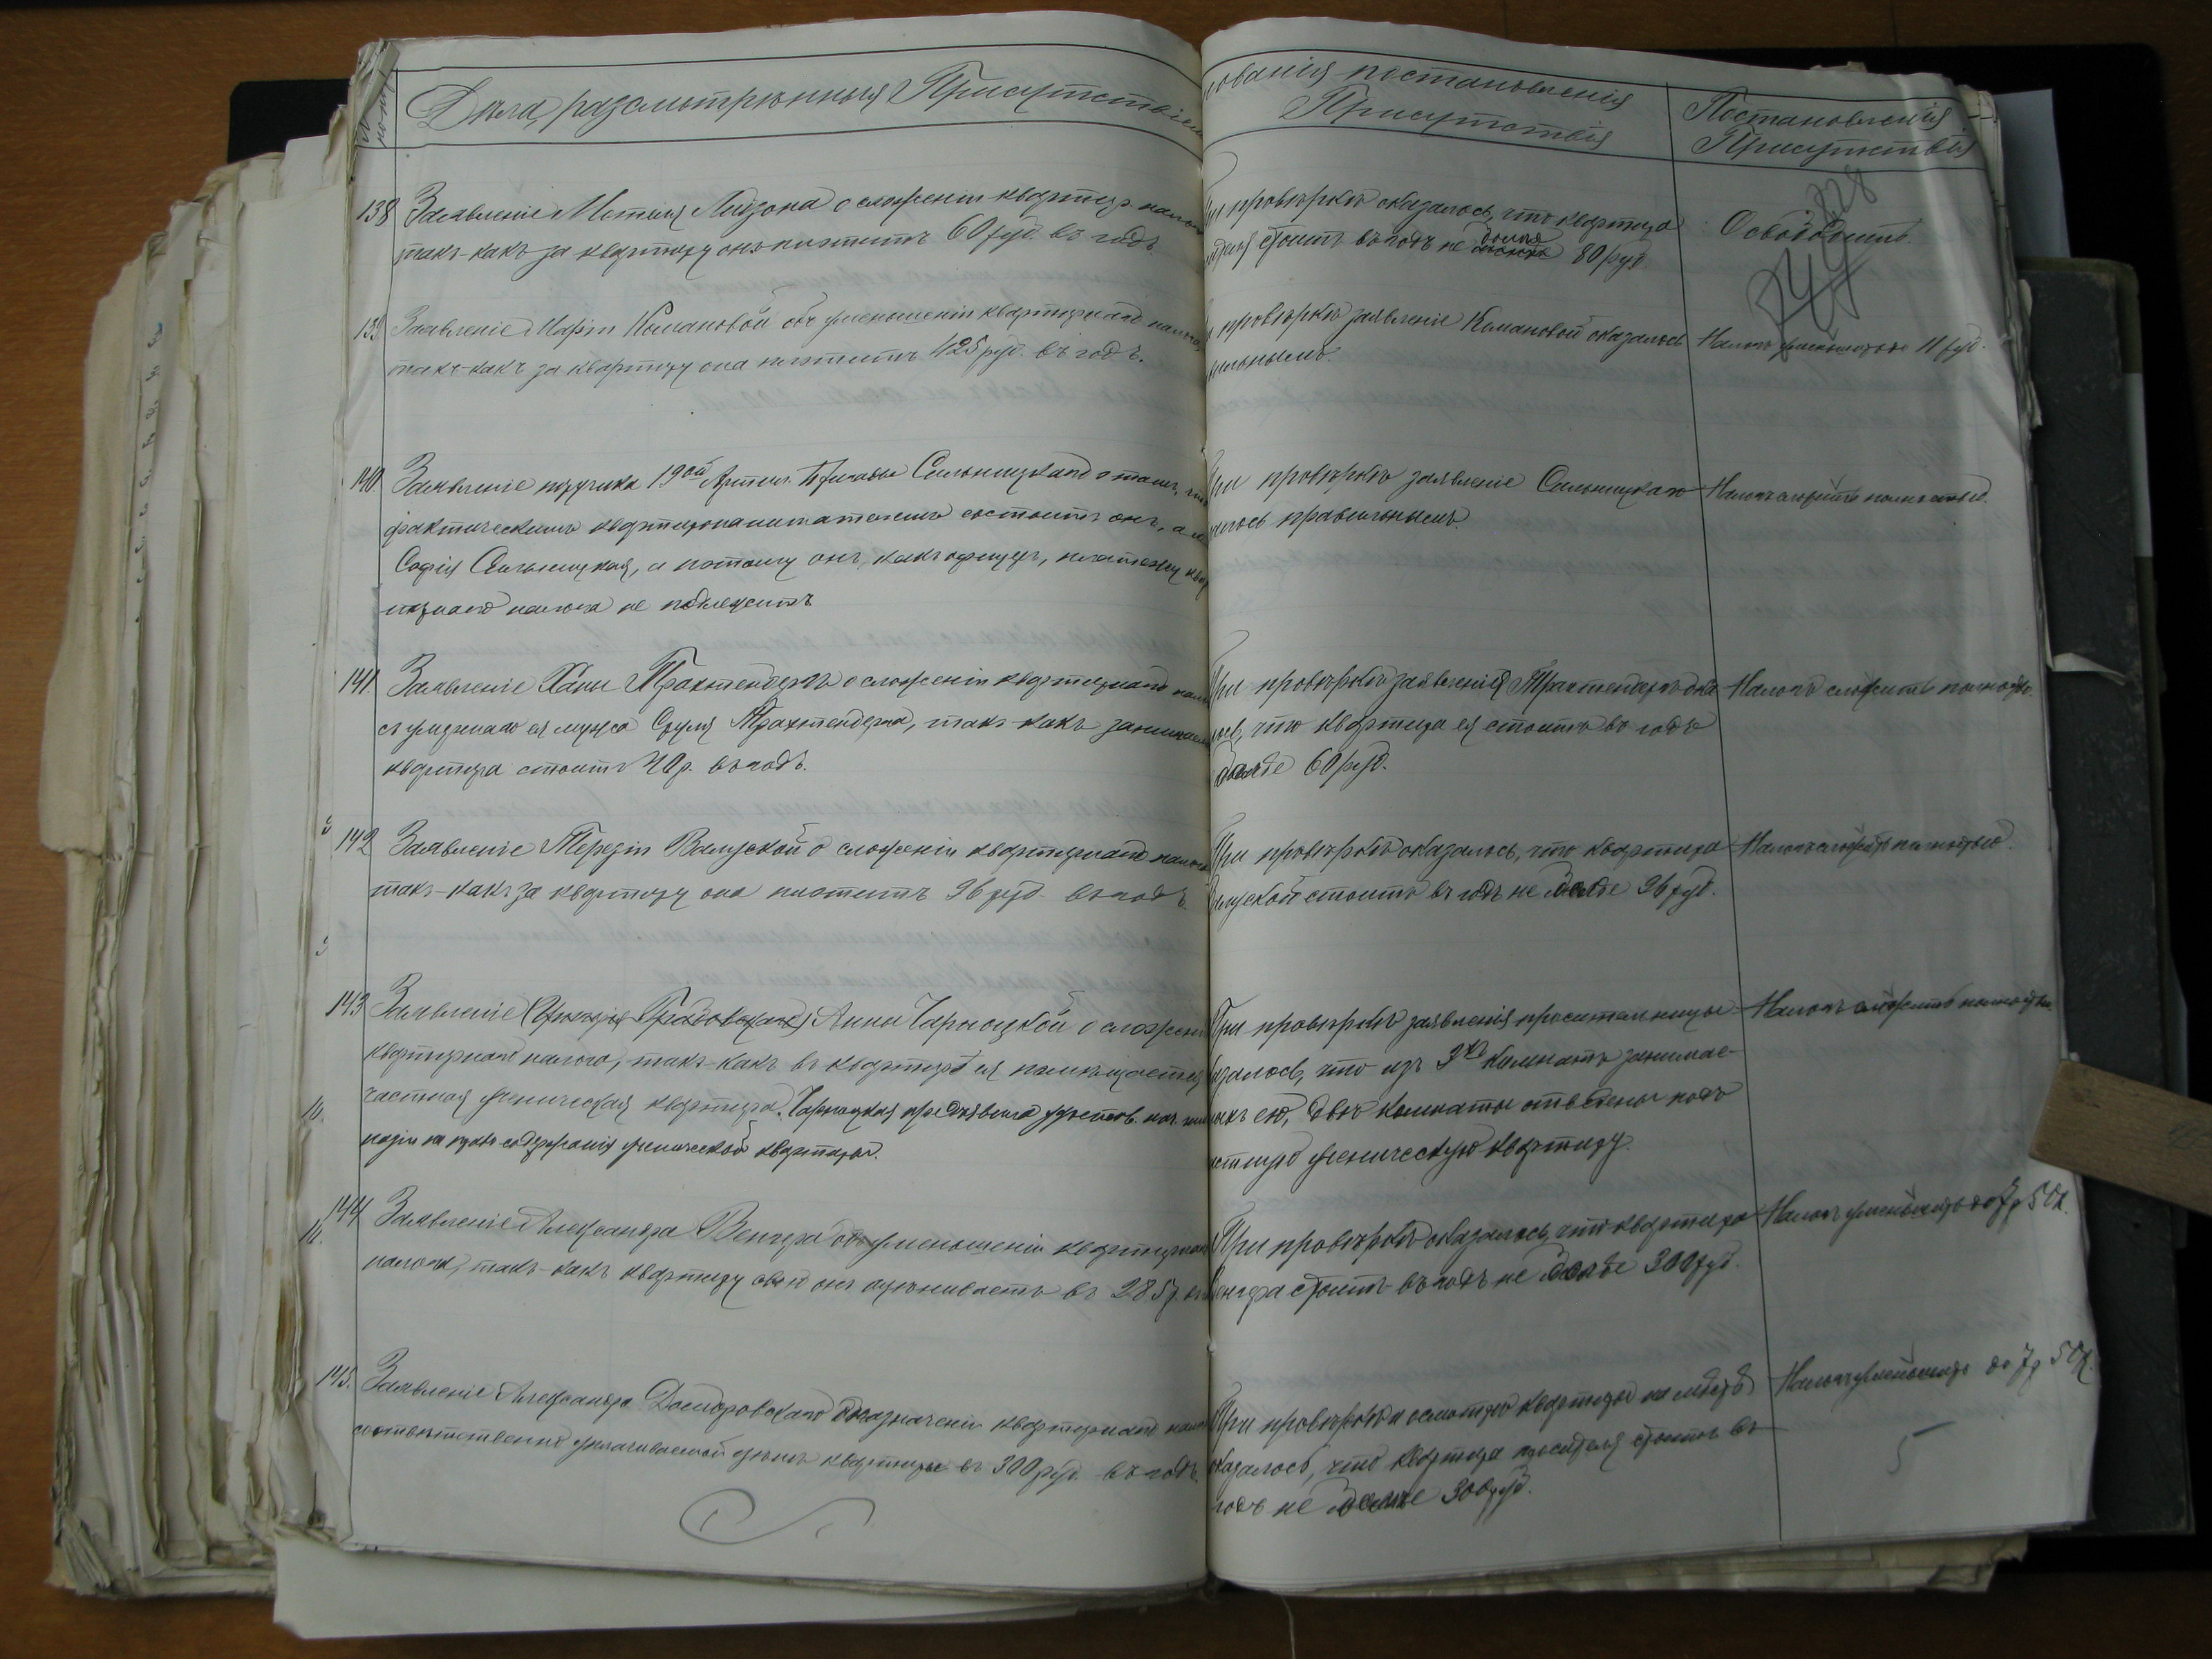 Дѣла, разсмотрѣнныя Присутствіем
138 Заявленіе Мотеля Лейзона о сложеніи квартир. нало
такъ-какъ за квартиру онъ платитъ 60 руб. въ годъ.
139 Заявленіе Маріи Комановой объ уменьшеніи квартирнаго налога,
такъ-какъ за квартиру она платитъ 425 руб. въ годъ.
140 Заявленіе поручика 19ой Артил. Бригады Сильницкаго о томъ, что
фактическимъ квартиронанимателемъ состоитъ онъ, а не
Софія Сильницкая, а потому онъ, какъ офицеръ, платежу квар
тирнаго налога не подлежитъ.
141 Заявленіе Ханы Трахтенбергъ о сложеніи квартирнаго нало
съ умершаго ея мужа Сруля Трахтенберга, такъ-какъ занимаем
квартира стоитъ 40 р. въ годъ.
142 Заявленіе Терезіи Валуской о сложеніи квартирнаго налога
такъ-какъ за квартиру она платитъ 96 руб. въ годъ.
143 Заявленіе Анны Чарноцкой о сложен
квартирнаго налога, такъ-какъ въ квартирѣ ея помѣщается
частная ученическая квартира. Чарноцкая предъявила удостов. нач. гим
назіи на право содержанія ученической квартиры.
144 Заявленіе Александра Венгера объ уменьшеніи квартирнаго
налога, такъ-какъ квартиру свою онъ оцѣниваетъ въ 285 р. въ
145. Заявленіе Александра Домбровскаго о назначеніи квартирнаго нало
соотвѣтственно уплачиваемой цѣнѣ квартиры въ 300 руб. въ годъ.
нованія постановленія
Присутствія
При провѣркѣ оказалось, что квартира
стоитъ въ годъ не болѣе 80 руб.
провѣркѣ заявленіе Комановой оказалось
вильнымъ.
При провѣркѣ заявленіе Сильницкаго
залось правильнымъ.
При провѣркѣ заявленія Трахтенбергъ ока
лось, что квартира ея стоитъ въ годъ
болѣе 60 руб.
При провѣркѣ оказалось, что квартира
Валуской стоитъ въ годъ не болѣе 96 руб.
При провѣркѣ заявленія просительницы
казалось, что изъ 3хъ комнатъ занимае-
мыхъ ею, двѣ комнаты отведены подъ
частную ученическую квартиру.
При провѣркѣ оказалось, что квартира
Венгера стоитъ въ годъ не болѣе 300 руб.
При провѣркѣ и осмотрѣ квартиры на мѣстѣ
оказалось, что квартира просителя стоитъ въ
годъ не болѣе 300 руб.
Постановленія
Присутствія
328
Освободить.
Налогъ уменьшить до 11 руб.
Налогъ сложить полностью.
Налогъ сложить полностью.
Налогъ сложить полностью.
Налогъ сложить полностью.
Налогъ уменьшить до 7 р 50 к.
Налогъ уменьшить до 7 р 50 к.